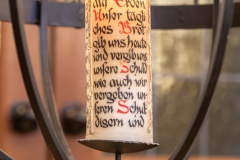 auf Erden
Unser tägli
ches Brot
gib uns heute
und vergib uns
unsere Schuld
wie auch wir
vergeben un
seren Schul
digern und